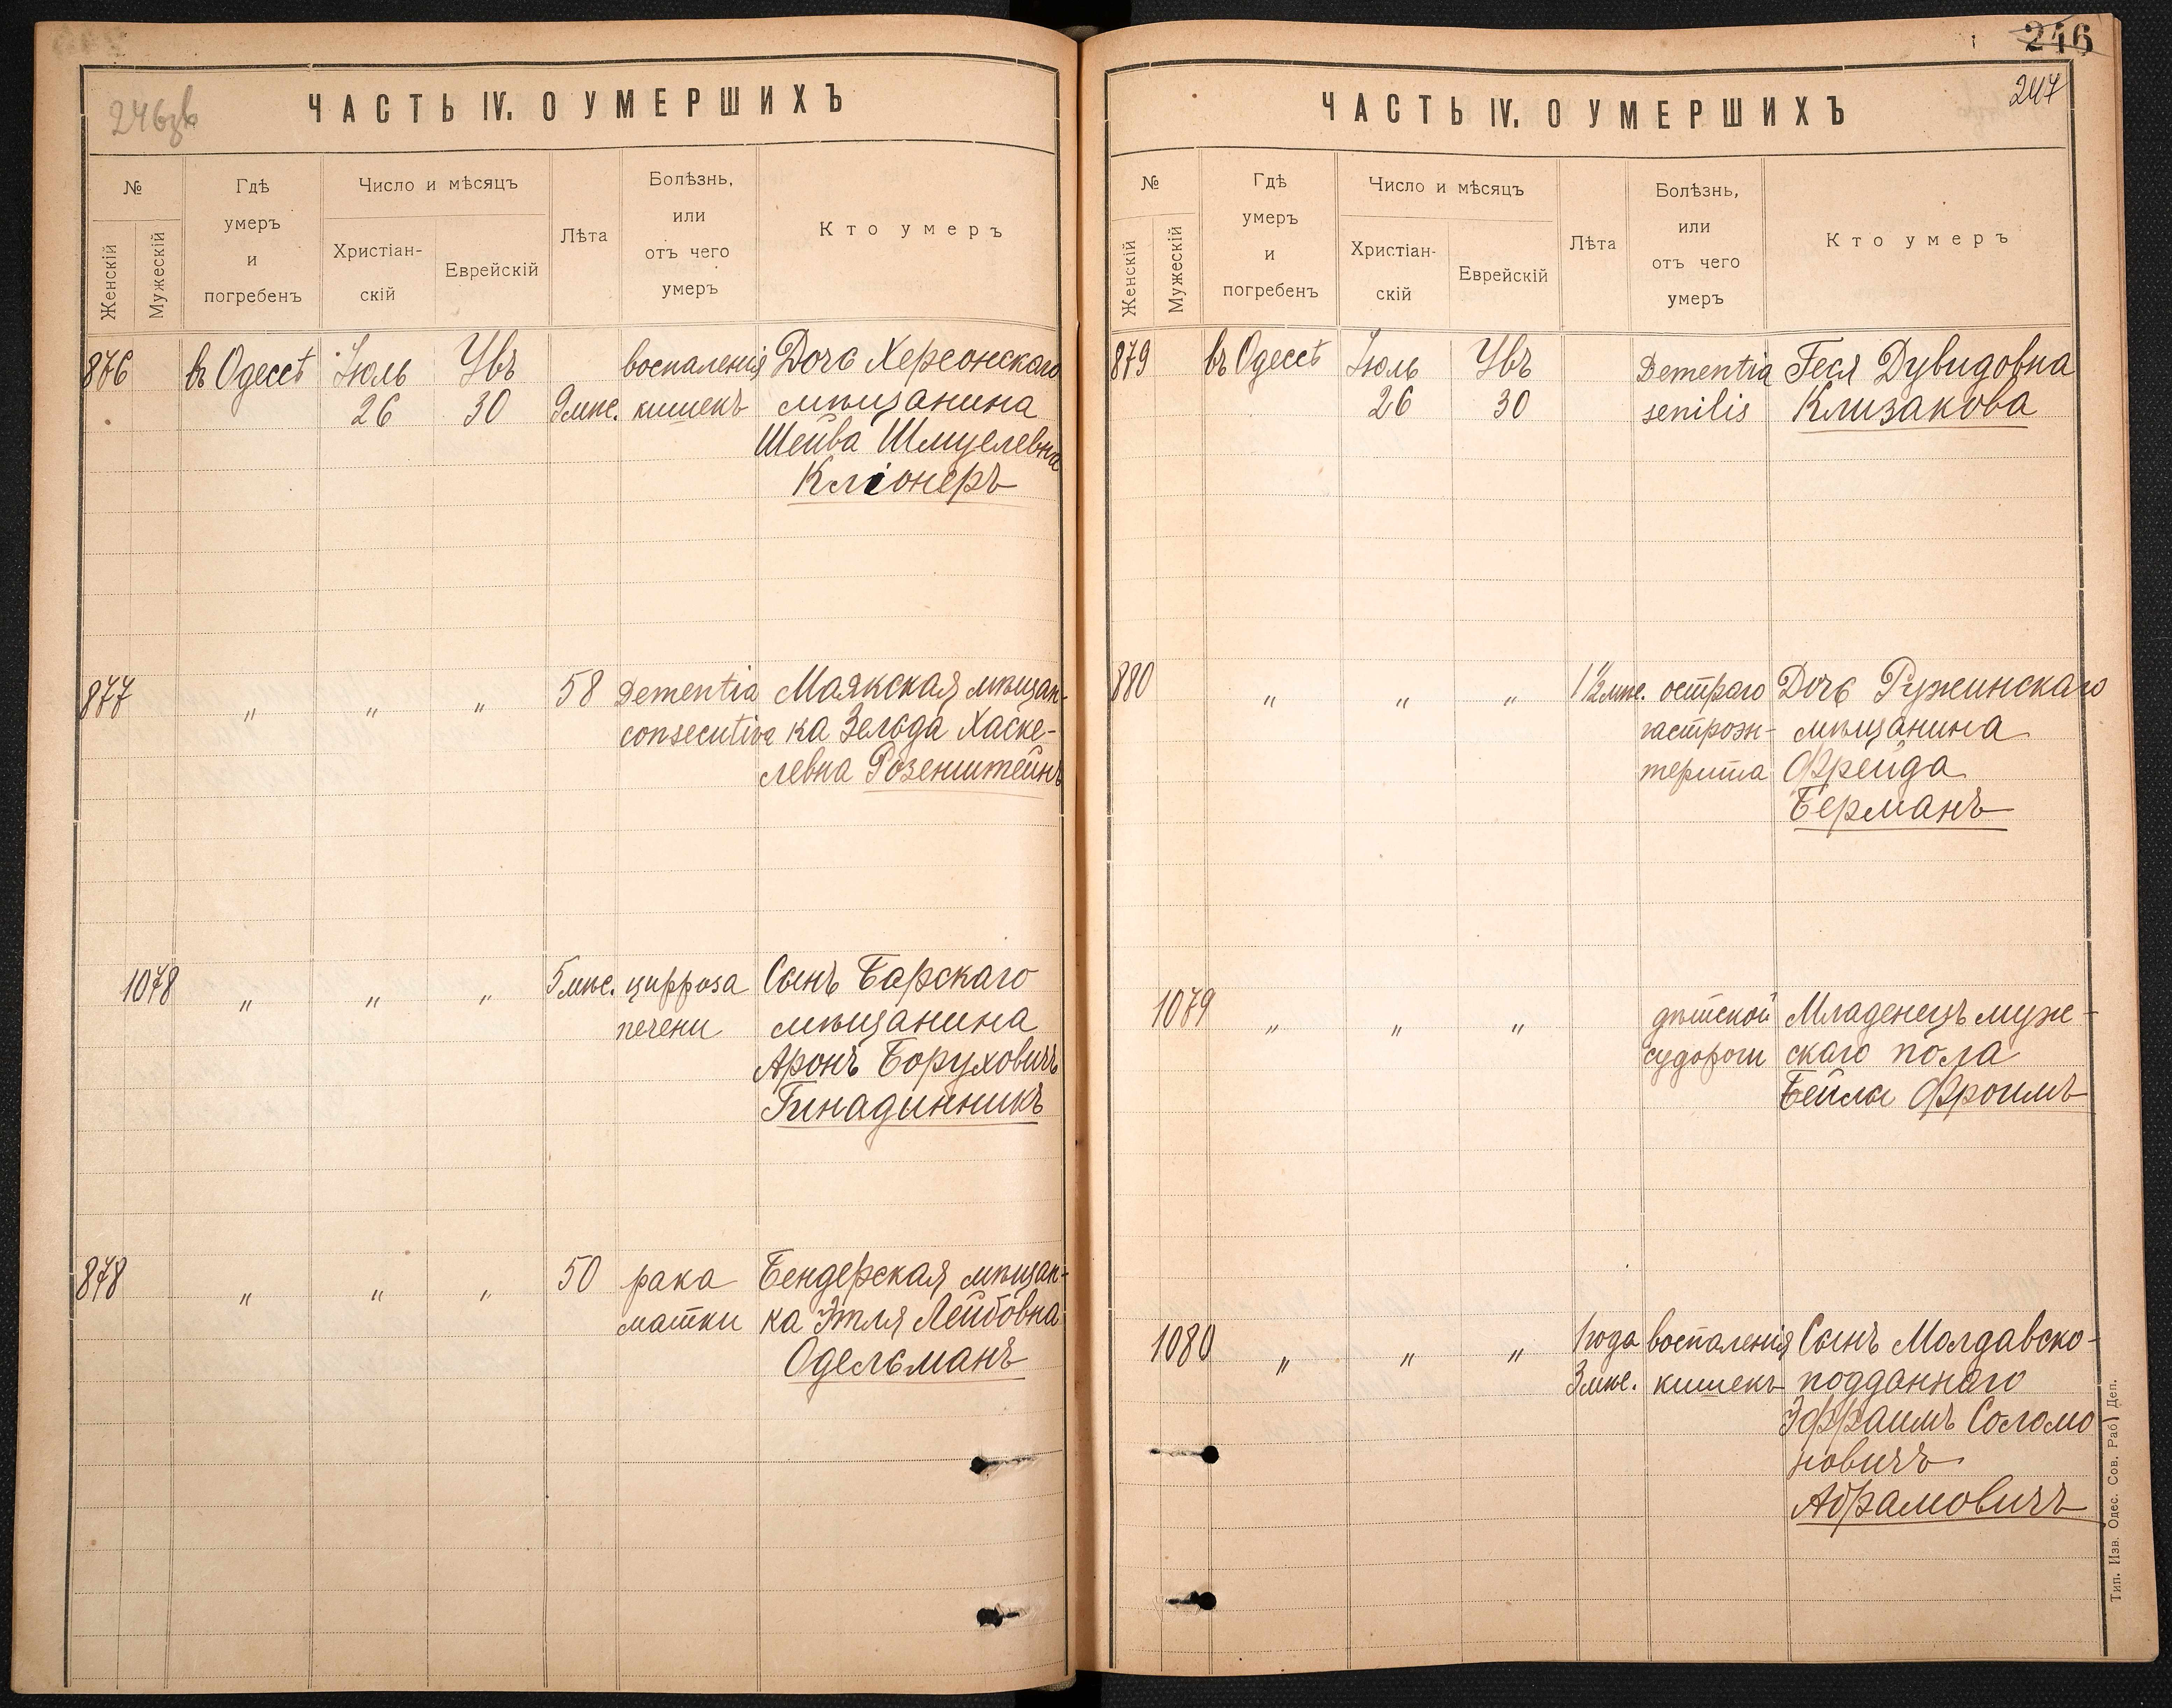 246зв
ЧАСТЬ IV. О УМЕРШИХЪ
№
Женскій
Мужескій
Гдѣ
умеръ
и
погребенъ
Число и мѣсяцъ
Христіан-
скій
Еврейскій
Лѣта
Болѣзнь,
или
отъ чего
умеръ
Кто умеръ
876 въ Одессѣ Іюль Убъ воспаленія Дочь Херсонскаго
26 30 9 мѣс. кишекъ мѣщанина
Шейва Шмулевна
Кліонеръ
877 " " " 58 Dementia Маякская мѣщан-
consecutiva ка Зельда Хаске-
левна Розенштейнъ
1078 " " " 5 мѣс. цирроза Сынъ Барскаго
печени мѣщанина
Аронъ Боруховичъ
Гинадинникъ
878 " " " 50 рака Бендерская мѣщан-
матки ка Этля Лейбовна
Одельманъ
246
247
ЧАСТЬ IV. О УМЕРШИХЪ
№
Женскій
Мужескій
Гдѣ
умеръ
и
погребенъ
Число и мѣсяцъ
Христіан-
скій
Еврейскій
Лѣта
Болѣзнь,
или
отъ чего
умеръ
Кто умеръ
879 въ Одессѣ Іюль Убъ Dementia Геся Дувидовна
26 30 senilis Клизакова
880 " " " 1 1/2 мѣс. остраго Дочь Ружинскаго
гастроэн- мѣщанина
терита Фрейда
Берманъ
1079 " " " дѣтской Младенецъ муж-
судороги скаго пола
Бейлы Фроимъ
1080 " " " 1 года воспаленія Сынъ Молдавско-
3 мѣс. кишекъ подданнаго
Эфраимъ Соломо
новичъ
Абрамовичъ
Тип. Изв. Одес. Сов. Раб. Деп.